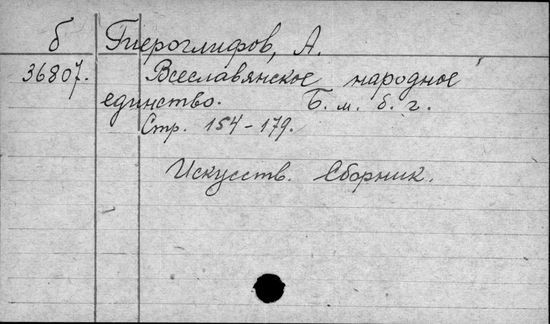 б Гиероглифов, А.
36807. Всеславянское народное
единство. Б. м. б. г.
Стр. 154-179.
Искусств. Сборник.